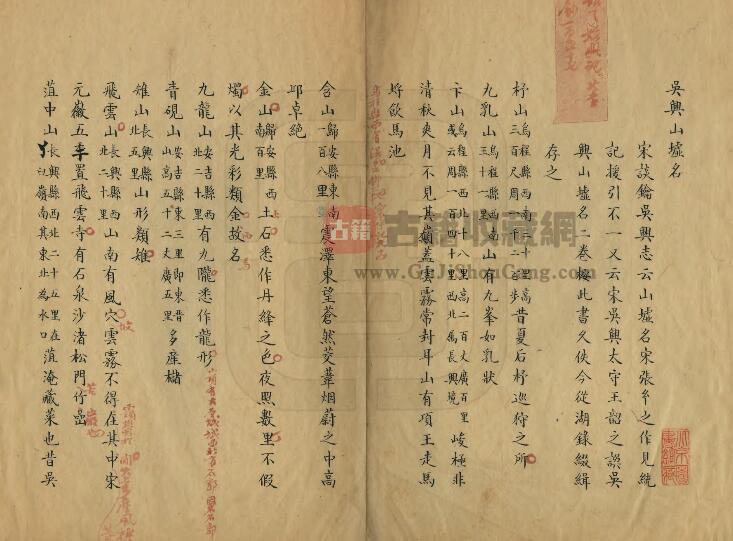 吳興山墟名
宋談鑰吳興志云山墟名宋張𤣥之作見統
記援引不一又云宋吳興太守王韶之誤吳
興山墟名二卷按此書久佚今從湖錄綴緝
存之
杼山烏程縣西南三十里高三百尺周一千二百步昔夏后杼巡狩之所
九乳山烏程縣西南三十一里南山有九峯如乳狀
卞山烏程縣西北十八里高二百丈廣百里或云周一百四十里西北屬長興境峻極非
清秋爽月不見其嶺蓋雲霧常封耳山有項王走馬
埒飲馬池
含山歸安縣東南一百八里震澤東望蒼然茭葦烟蔚之中高
邱卓絕
金山歸安縣西南百里土石悉作丹絳之色夜照數里不假
燭以其光彩類金故名
九龍山安吉縣西北二十里有九隴悉作龍形
青硯山安吉縣東三里即東晉山高五十二丈廣五里多產櫧
雉山長興縣北五里山形類雉
飛雲山長興縣西北二十里山南有風穴雲霧不得在其中宋
元徽五年置飛雲寺有石泉沙渚松門竹嵒
菹中山長興縣西北二十五里在江嶺南其東北為水口菹淹藏菜也昔吳
古籍收藏網
www.GuJiShouCang.com